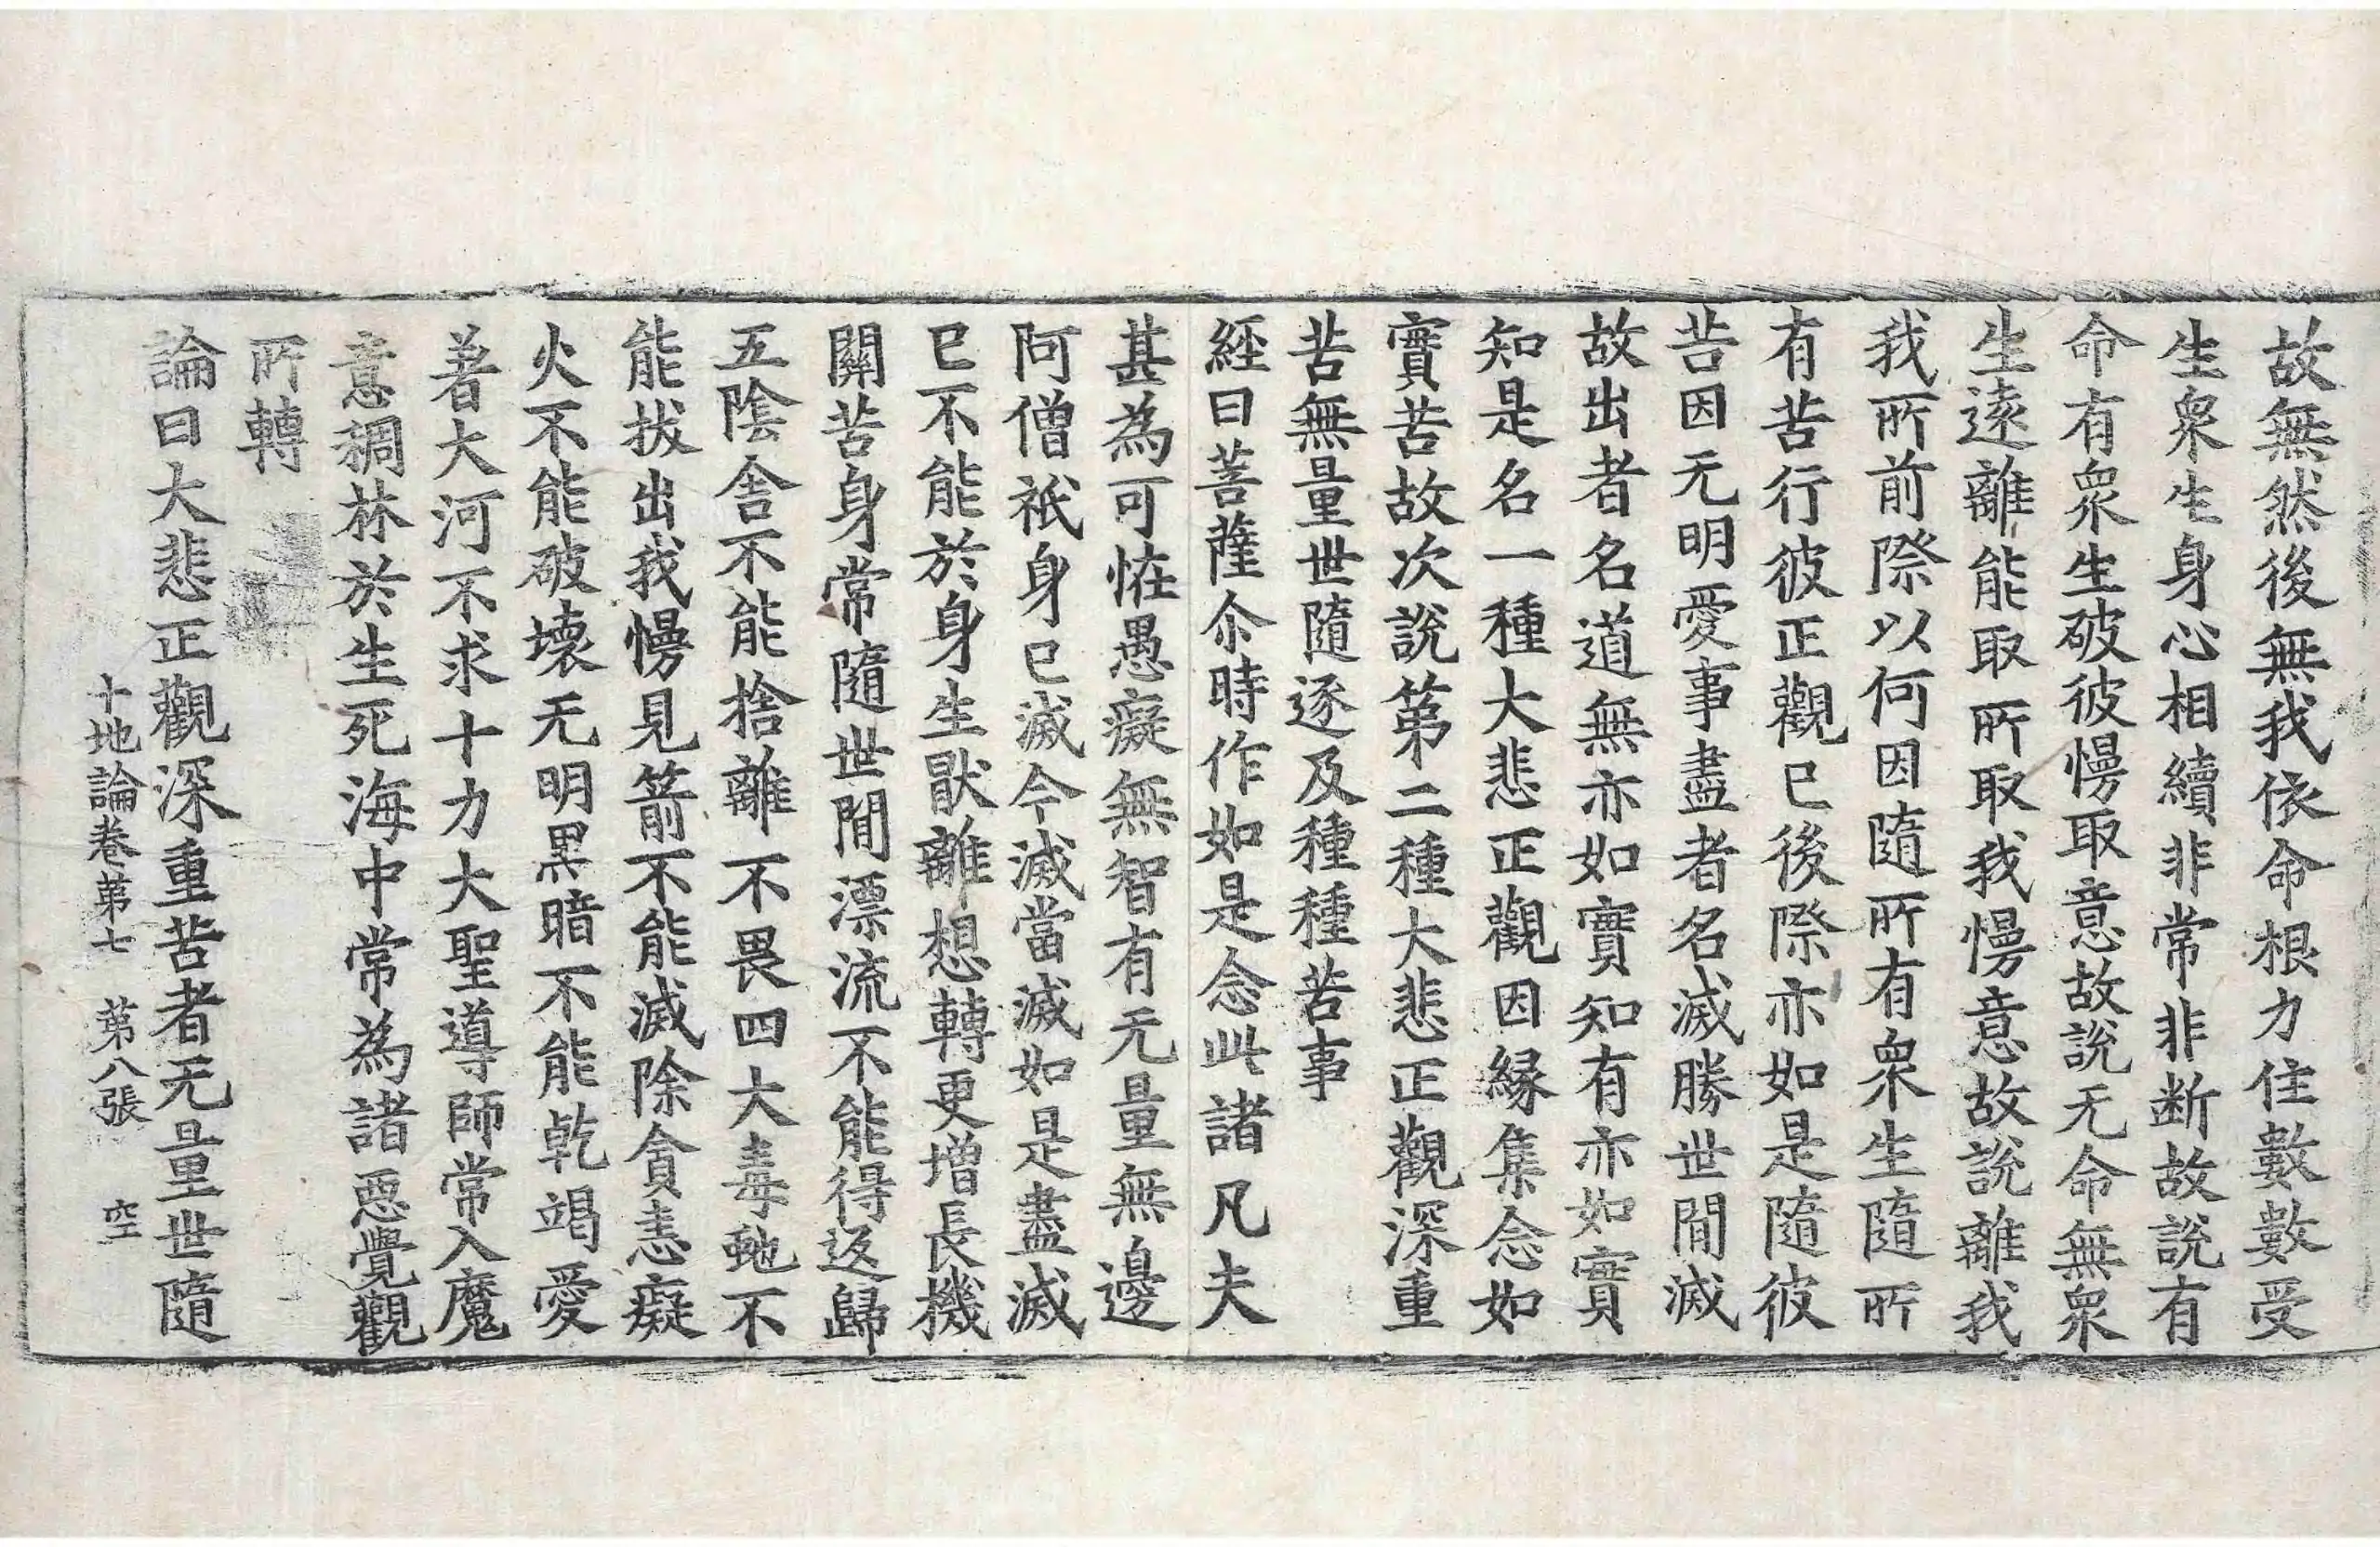 故無然後無我依命根力住數數受
生衆生身心相續非常非断故説有
命有衆生破彼慢取意故説无命無衆
生遠離能取所取我慢意故説離我
我所前際以何因隨所有衆生隨所
有苦行彼正觀已後際亦如是隨彼
苦因无明愛事盡者名滅勝世間滅
故出者名道無亦如實知有亦如實
知是名一種大悲正觀因縁集念如
實苦故次説第二種大悲正觀深重
苦無量世隨逐及種種苦事
經曰菩薩尒時作如是念此諸凡夫
甚為可恠愚癡無智有无量無邊
阿僧祇身已滅今滅當滅如是盡滅
已不能於身生猒離想轉更增長機
關苦身常隨世間漂流不能得返歸
五陰舎不能捨離不畏四大毒虵不
能拔出我慢見箭不能滅除貪恚癡
火不能破壞无明黒暗不能乾竭愛
著大河不求十力大聖導師常入魔
意稠林於生死海中常為諸惡覺觀
所轉
論曰大悲正觀深重苦者无量世隨
十地論卷第七 第八張 空